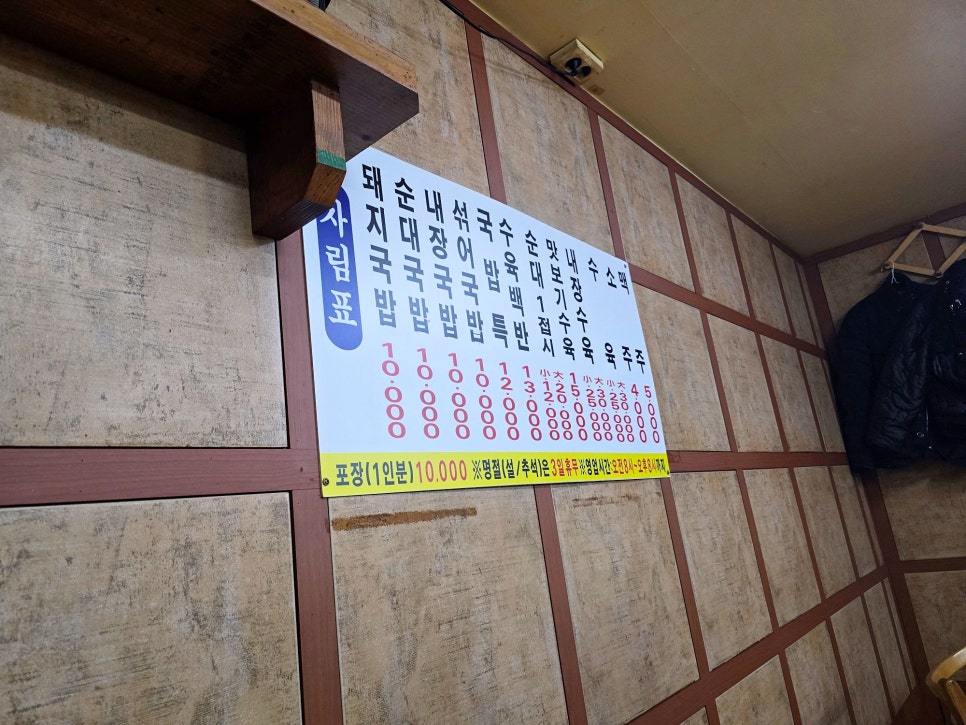 차림표
돼지국밥 10.000
순대국밥 10.000
내장국밥 10.000
섞어국밥 10.000
국밥특 12.000
수육백반 13.000
순대1접시 小 大
맛보기수육 15.000
내장수육 小 大
수육 小 大
소주 4.000
맥주 5.000
포장(1인분)10.000 ※명절(설/추석)은 3일휴무 ※영업시간:오전8시~오후8시까지